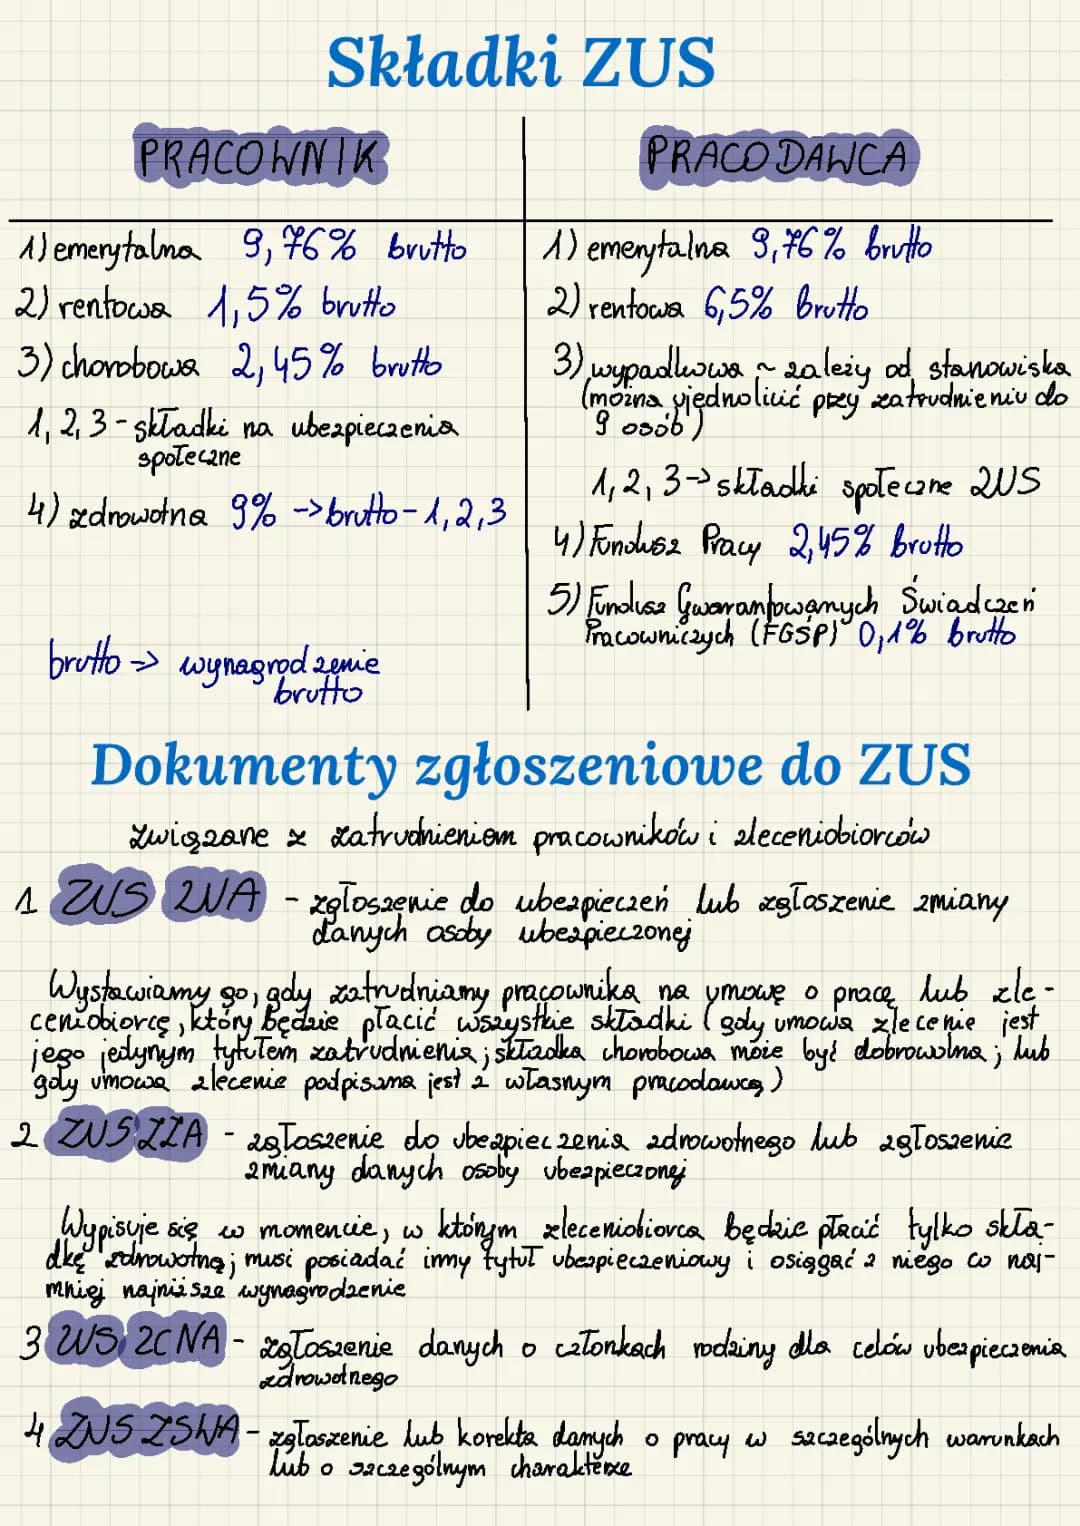 Składki ZUS
PRACOWNIK
1) emerytalna 9,76% brutto
2) rentowa 1,5% brutto
3) chorobowa 2,45% brutto
1, 2, 3 - składki na ubezpieczenia
społeczne
4) zdrowotna 9% -> brutto - 1, 2, 3
brutto -> wynagrodzenie
brutto
PRACODAWCA
1) emerytalna 9,76% brutto
2) rentowa 6,5% brutto
3) wypadkowa ~ zależy od stanowiska
(można ujednolicić przy zatrudnieniu do
9 osób)
1, 2, 3 -> składki społeczne ZUS
4) Fundusz Pracy 2,45% brutto
5) Fundusz Gwarantowanych Świadczeń
Pracowniczych (FGŚP) 0,1% brutto
Dokumenty zgłoszeniowe do ZUS
związane z zatrudnieniem pracowników i zleceniobiorców
1 ZUS ZUA - zgłoszenie do ubezpieczeń lub zgłoszenie zmiany
danych osoby ubezpieczonej
Wystawiamy go, gdy zatrudniamy pracownika na umowę o pracę lub zle-
ceniobiorcę, który będzie płacić wszystkie składki (gdy umowa zlecenie jest
jego jedynym tytułem zatrudnienia; składka chorobowa może być dobrowolna; lub
gdy umowa zlecenie podpisana jest z własnym pracodawcą)
2 ZUS ZZA - zgłoszenie do ubezpieczenia zdrowotnego lub zgłoszenie
zmiany danych osoby ubezpieczonej
Wypisuje się w momencie, w którym zleceniobiorca będzie płacić tylko skła-
dkę zdrowotną; musi posiadać inny tytuł ubezpieczeniowy i osiągać z niego co naj-
mniej najniższe wynagrodzenie
3 ZUS ZCNA - zgłoszenie danych o członkach rodziny dla celów ubezpieczenia
zdrowotnego
4 ZUS ZSWA - zgłoszenie lub korekta danych o pracy w szczególnych warunkach
lub o szczególnym charakterze